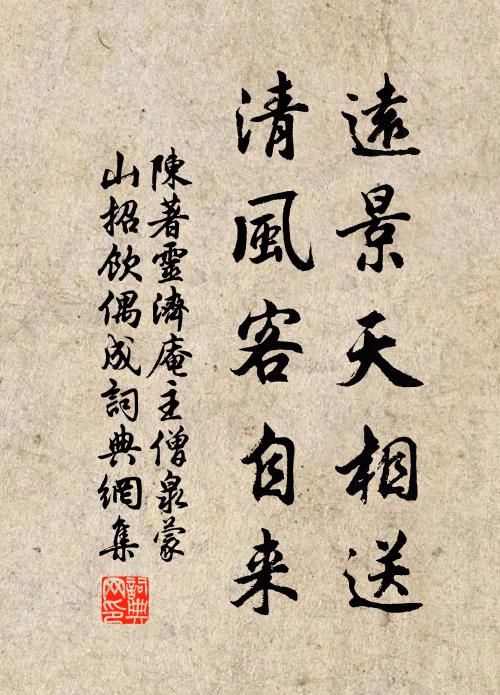 遠景天相送
清風客自来
陳著靈濟庵主僧泉蒙
山招飲偶成詞典網集
詞典網印